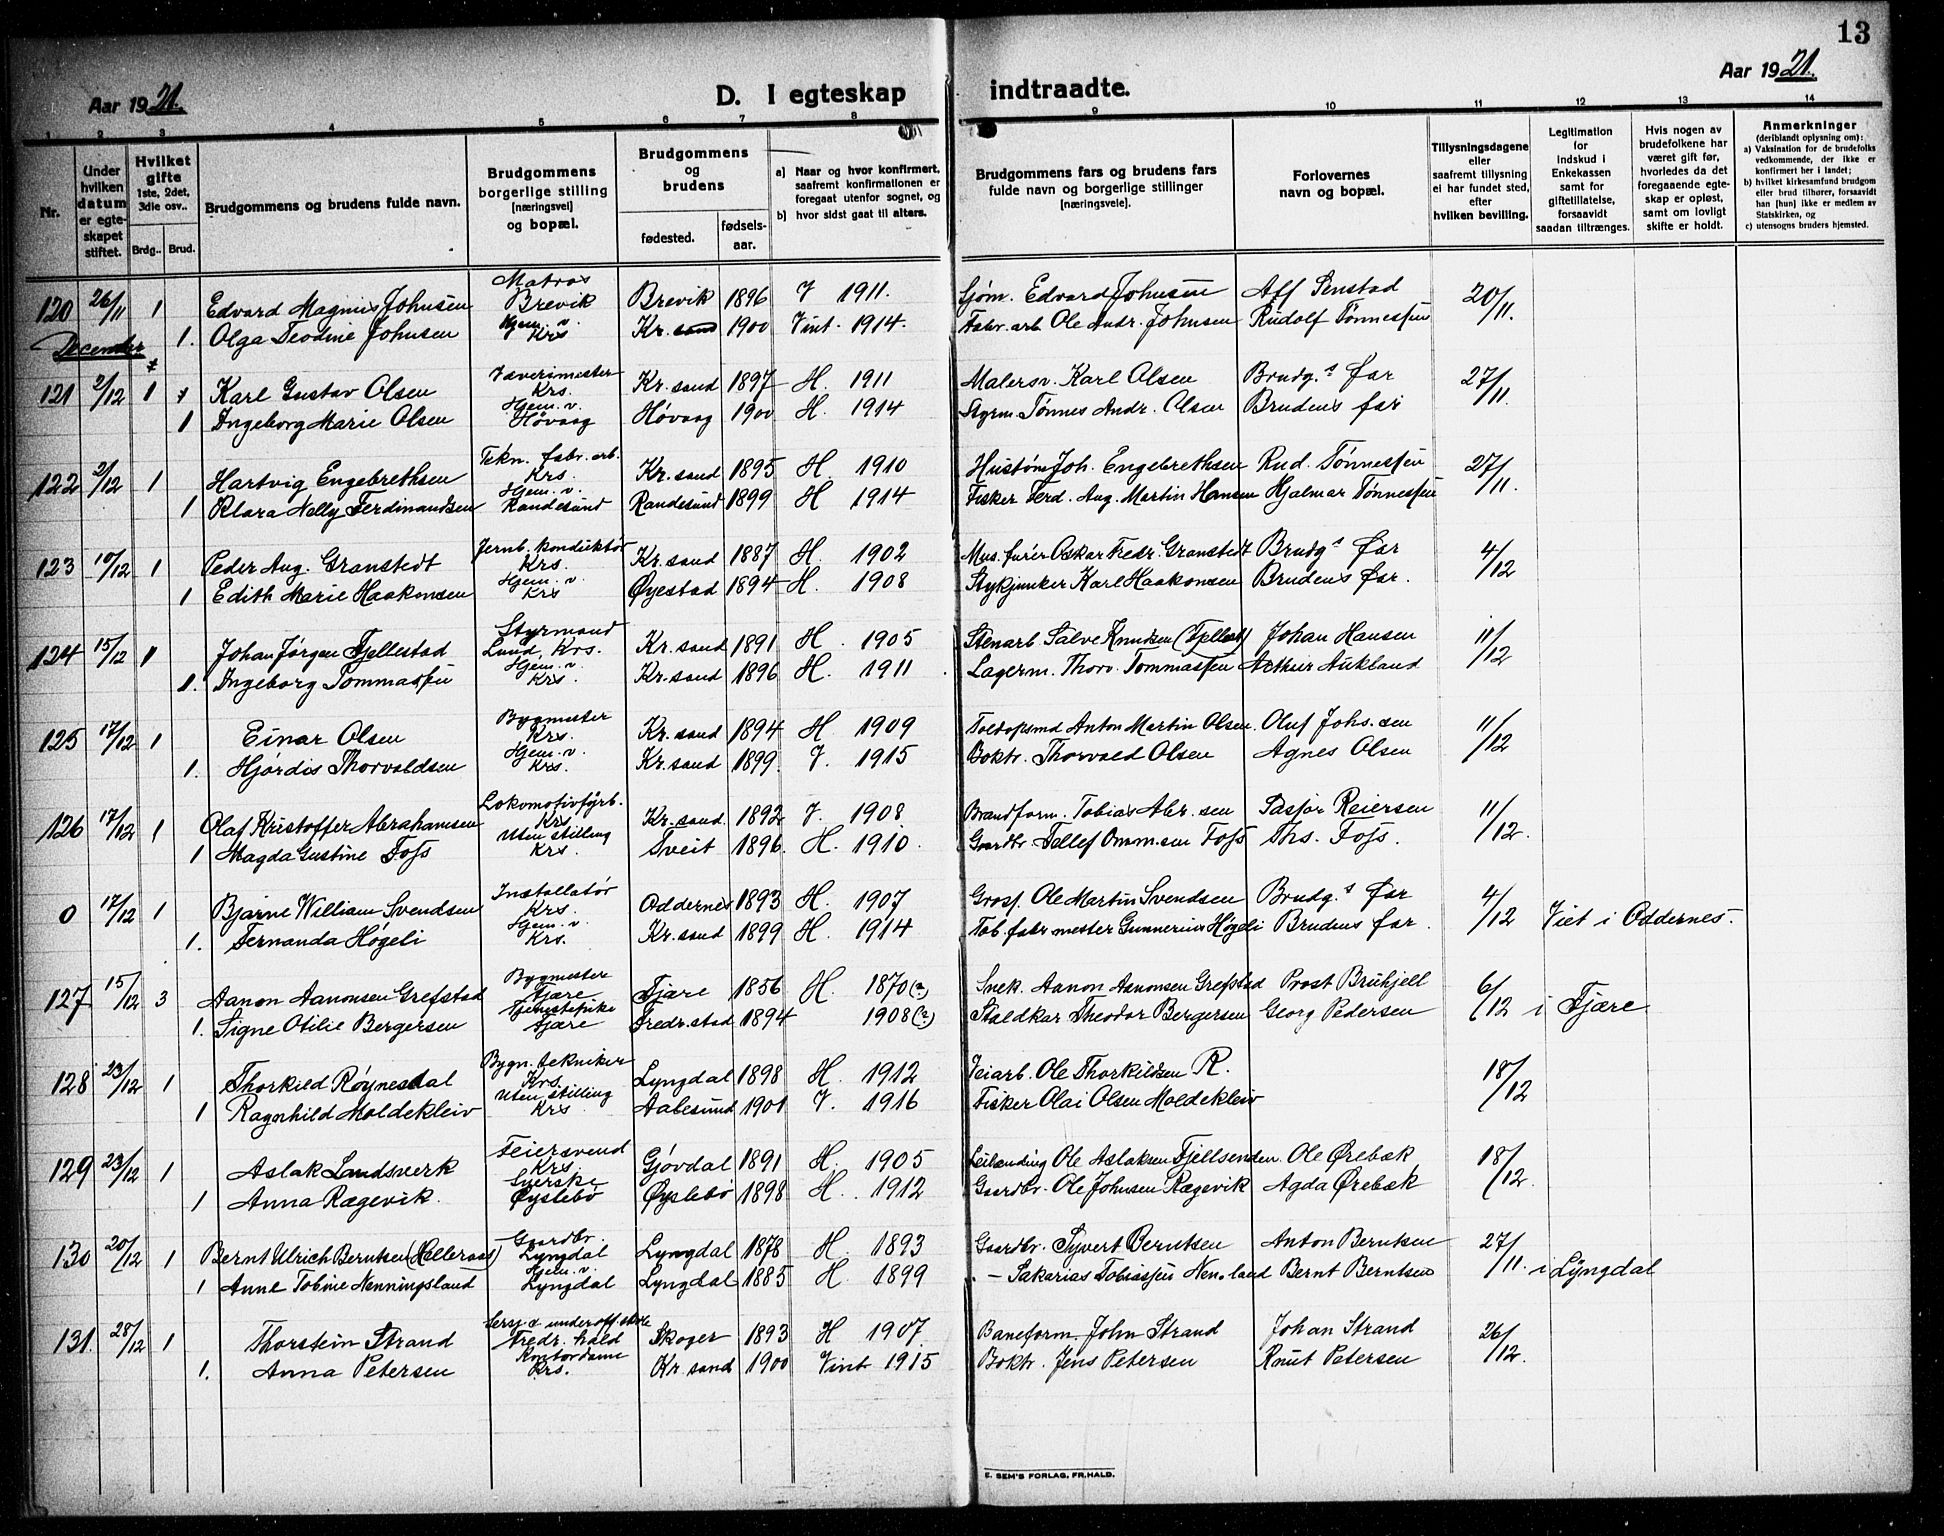 13
Aar 1921. D. I egteskap indtraadte. Aar 1921.
1 2 3 4 5 6 7 8 9 10 11 12 13 14
Nr.
Under hvilken datum er egteskapet stiftet.
Hvilket gifte 1ste, 2det, 3die osv..
Brdg.. Brud.
Brudgommens og brudens fulde navn.
Brudgommens borgerlige stilling [næringsvei] og bopæl.
Brudgommens og brudens
fødested. fødselsaar.
a) Naar og hvor konfirmert, saafremt konfirmationen er foregaat utenfor sognet, og
b) hvor sidst gaat til alters.
Brudgommens fars og brudens fars fulde navn og borgerlige stillinger [næringsveie].
Forlovernes navn og bopæl.
Tillysningsdagene eller saafremt tillysning ei har fundet sted, efter hvilken bevilling.
Legitimation for indskud i Enkekassen samt for giftetillatelse, forsaavidt saadan tiltrænges.
Hvis nogen av brudefolkene har været gift før, hvorledes da det foregaaende egteskap er opløst, samt om lovligt skifte er holdt.
Anmerkninger (deriblandt oplysning om): a) Vaksination for de brudefolks vedkommende, der ikke er konfirmert her i landet; b) hvilket kirkesamfund brudgom eller brud tilhører, forsaavidt han (hun) ikke er medlem av Statskirken, og c) utensogns bruders hjemsted.
120 26/11 1 Edvard Magnus Johnsen Matros Brevik Brevik 1896 J 1911. Sjøm. Edvard Johnsen Alf Senstad 20/11.
1. Olga Teodine Johnsen Hjem. v. Krs Kr. sand 1900 Vint. 1914. Fabr. arb. Ole Andr. Johnsen Rudolf Tønnessen
December
121 2/12 1 Karl Gustav Olsen Værimester Krs. Kr. sand 1897 H. 1911 Malersv. Karl Olsen Brudg.s far 27/11.
1 Ingeborg Marie Olsen Hjem. v. Høvaag Høvaag 1900 H. 1914 Styrm. Tønnes Andr. Olsen Brudens far
122 2/12 1 Hartvig Engebrethsen Tekn. fabr. arb. Krs. Kr. sand 1895 H. 1910 Joh. Engebrethsen Rud. Tønnessen 27/11.
1 Klara Nelly Ferdinandsen Hjem. v. Randesund Randesund 1899 H 1914 Fisker Ferd. Aug. Martin Hansen Hjalmar Tønnessen
123 10/12 1 Peder Aug. Granstedt Jernb. konduktør Krs. Kr. sand 1887 H. 1902 Mus. furér Oskar Fredr. Granstedt Brudg.s far 4/12
1 Edith Marie Haakonsen Hjem. v. Krs Øyestad 1894 H. 1908 Stykjunker Karl Haakonsen Brudens far.
124 15/12 1 Johan Jørgen Fjellestad Styrmand Lund, Krs. Kr. sand 1891 H. 1905 Stenarb Salve Knudsen (Fjellest) Johan Hansen 11/12
1. Ingeborg Tommassen Hjem. v. Krs. Kr. sand 1896 H. 1911 Lagerm. Thorv. Tommassen Arthur Aukland
125 17/12 1 Einar Olsen Bygmester Krs. Kr. sand 1894 H. 1909 Toldopsmd Anton Martin Olsen. Oluf Johs.sen 11/12
1. Hjørdis Thorvaldsen Hjem. v. Krs. Kr. sand 1899. J. 1915 Boktr. Thorvald Olsen Agnes Olsen
126 17/12 1 Olaf Kristoffer Abrahamsen Lokomotivfyrb. Krs. Kr. sand 1892 J. 1908 Brandform. Tobias Abr.sen Reiersen 11/12.
1 Magda Gustine Foss Uten stilling Krs. Tveit 1896. H. 1910. Gaardbr Tellef Omm.sen Foss Ths. Foss.
0 17/12 1 Bjarne William Svendsen Installatør Krs. Oddernes 1893 H. 1907 Gross. Ole Martin Svendsen Brudg.s far 4/12 Viet i Oddernes.
1. Fernanda Høgeli Hjem. v. Krs. Kr. sand 1899 H. 1914 Tob. fabr mester Gunnerius Høgeli Brudens far.
127 15/12 3 Aanon Aanonsen Grefstad Bygmester Fjære Fjære 1856 H. 1870(?) Snek. Aanon Aanonsen Grefstad Prost Bruhjell 6/12 i Fjære
1. Signe Otilie Bergersen Tjenestepike Fjære Fredr.stad 1894 1908(?) Staldkar Theodor Bergersen Georg Pedersen
128 23/12 1 Thorkild Røynesdal Bygn. tekniker Krs. Lyngdal 1898 H. 1912 Veiarb. Ole Thorkildsen R. 18/12
1 Ragnhild Moldekleiv Uten stilling Krs Aalesund 1901 J. 1916 Fisker Olai Olsen Moldekleiv
129 23/12 1 Aslak Landsverk Feiersvend Krs. Gjøvdal 1891 H. 1905 Leilænding Ole Aslaksen Fjellsenden. Ole Ørebæk 18/12.
1 Anna Rægevik. Syerske Øyslebø Øyslebø 1898 H. 1912 Gaardbr. Ole Johnsen Rægevik Agda Ørebæk
130 20/12 1 Bernt Ulrich Berntsen (Helleraas) Gaardbr. Lyngdal Lyngdal 1878 H. 1893 Gaardbr. Syvert Berntsen Anton Berntsen 27/11. i Lyngdal
1 Anne Tobine Nenningsland Hjem. v. Lyngdal Lyngdal 1885 H. 1899 - Sakarias Tobiassen Nen.land Bernt Berntsen
131. 28/12 1 Thorstein Strand Sersj. v underoff. skole Fredr. hald Skoger 1893 H 1907. Baneform. John Strand Johan Strand 26/12.
1. Anna Petersen Kontordame Krs. Kr. sand 1900 Vint 1915 Boktr. Jens Petersen Knut Petersen
E. SEM'S FORLAG, FR.HALD.